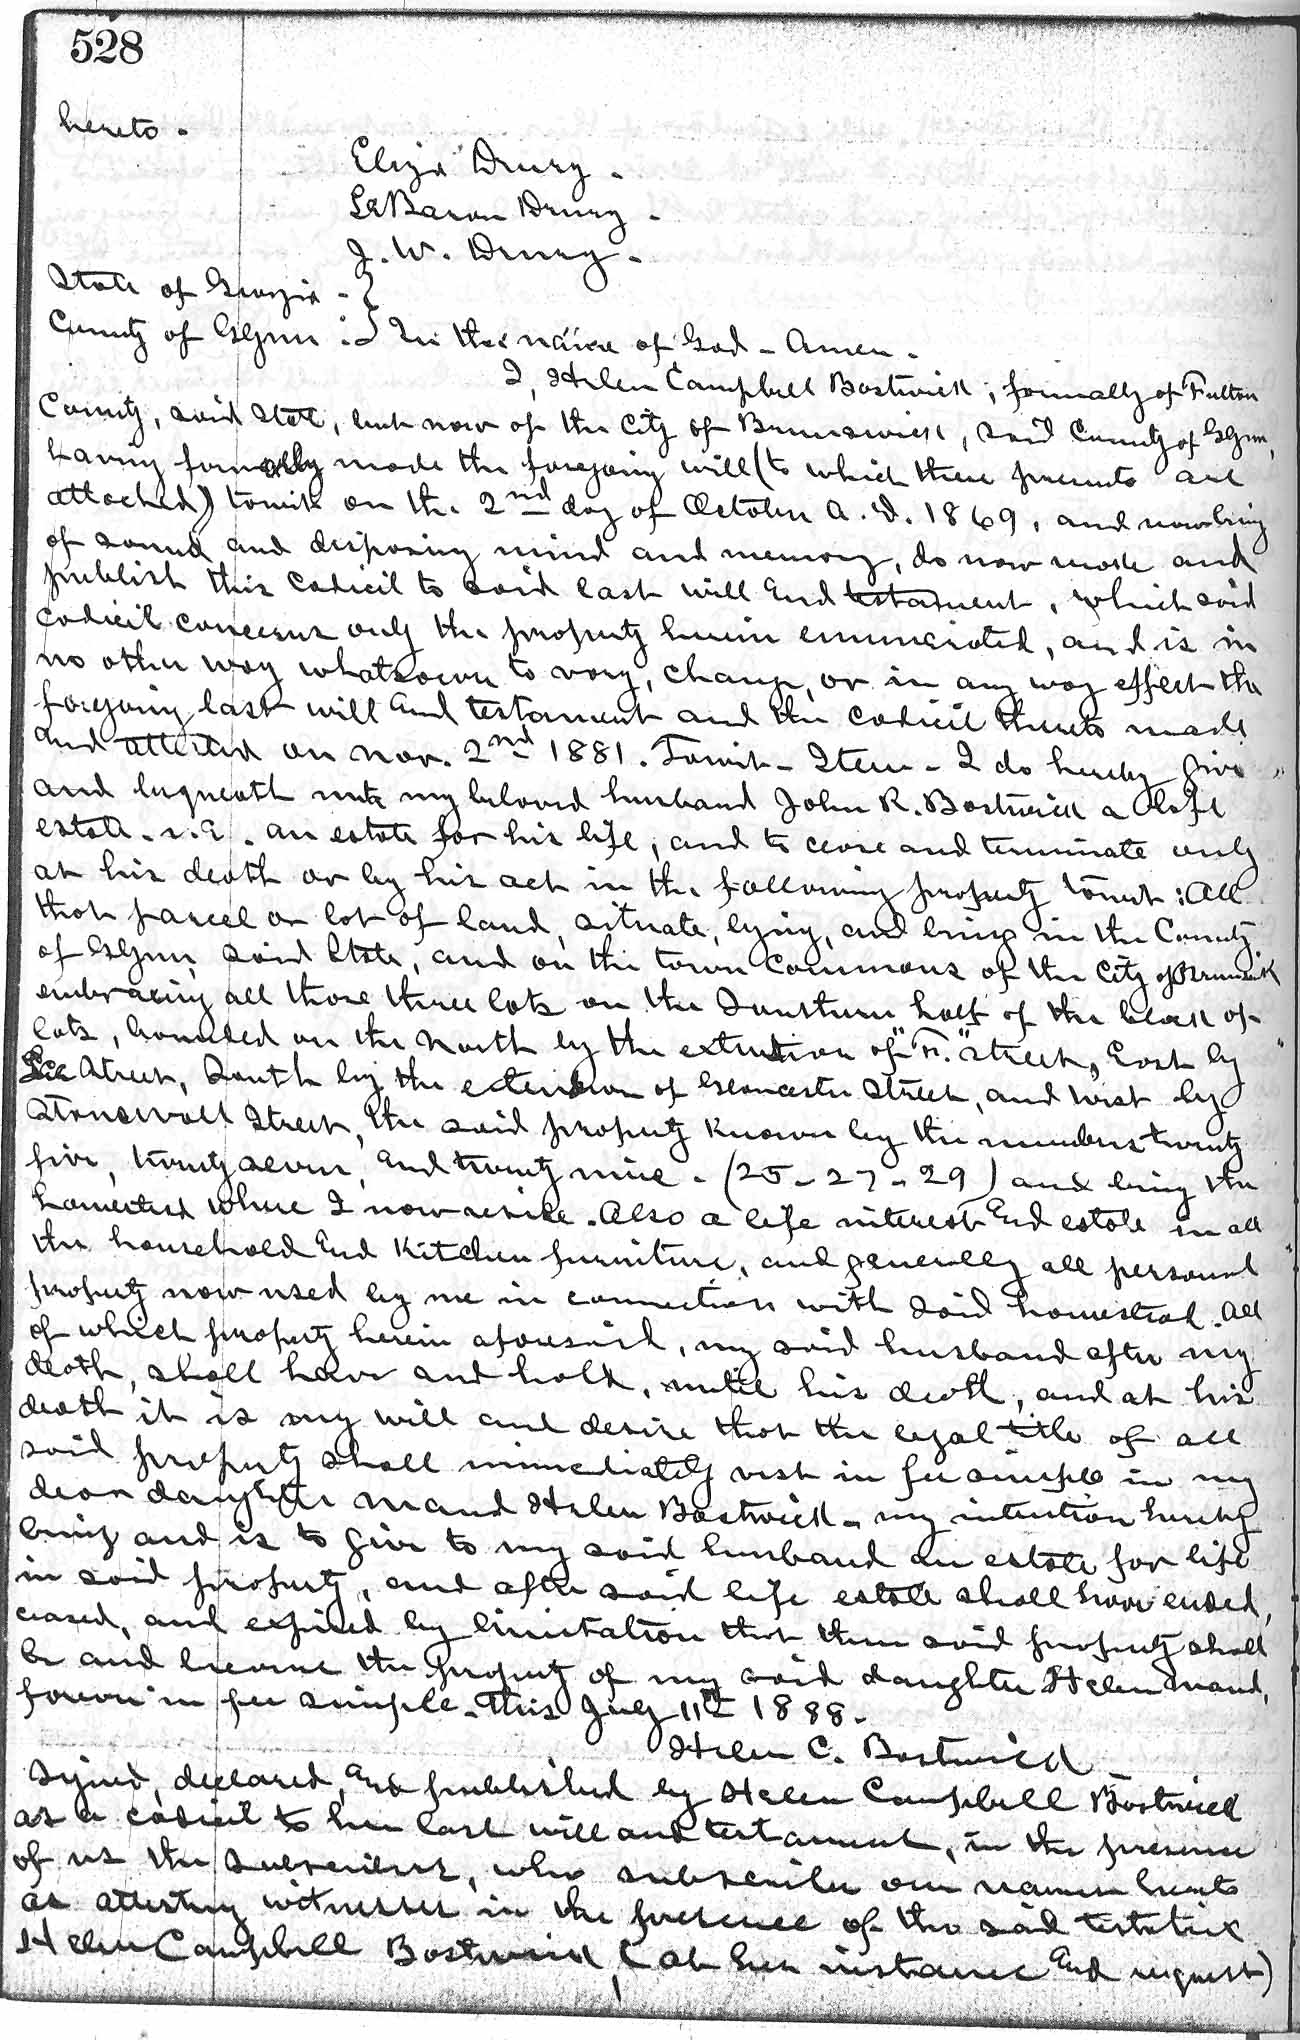 528
hereto.
Eliza Drury.
LeBaron Drury.
J. W. Drury.
State of Georgia - }
County of Glynn : } In the name of God - Amen.
I, Helen Campbell Bostwick, formally of Fulton
County, said State, but now of the City of Brunswick, said County of Glynn,
having formally made the foregoing will (to which these presents are
attached) towit on the 2nd day of October A. D. 1869, and now being
of sound and disposing mind and memory, do now make and
publish this Codicil to said last will and testament, which said
codicil concerns only the property herein enumerated, and is in
no other way whatsoever to vary, change, or in any way effect the
foregoing last will and testament and the codicil thereto made
and attested on Nov. 2nd 1881. Towit - Item - I do hereby give
and bequeath unto my beloved husband John R. Bostwick a life
estate - i.e. an estate for his life, and to cease and terminate only
at his death or by his act in the following property towit: All
that parcel or lot of land, situate, lying, and being in the County
of Glynn, said State, and on the town Commons of the City of Brunswick
embracing all those three lots on the Southern half of the block of
lots, bounded on the North by the extention of "F." Street, East by
Lee Street, South by the extension of Gloucester Street, and West by
Stonewall Street, the said property known by the numbers twenty
five, twenty seven, and twenty nine - (25 - 27 - 29) and being the
homestead where I now reside. Also a life interest and estate in all
the household and Kitchen furniture, and generally all personal
property now used by me in connection with said homestead. All
of which property herein aforesaid, my said husband after my
death, shall have and hold, until his death, and at his
death it is my will and desire that the legal title of all
said property shall immediately vest in fee simple in my
dear daughter Maud Helen Bostwick - my intention hereby
being and is to give to my said husband an estate for life
in said property, and after said life estate shall have ended,
ceased, and expired by limitation that then said property shall
be and become the property of my said daughter Helen Maud,
forever in fee simple. This July 11th 1888.
Helen C. Bostwick
Signed, declared, and published by Helen Campbell Bostwick
as a codicil to her last will and testament, in the presence
of us the subscribers, who subscribe our names hereto
as attesting witnesses in the presence of the said testatrix
Helen Campbell Bostwick, (at her instance and request)